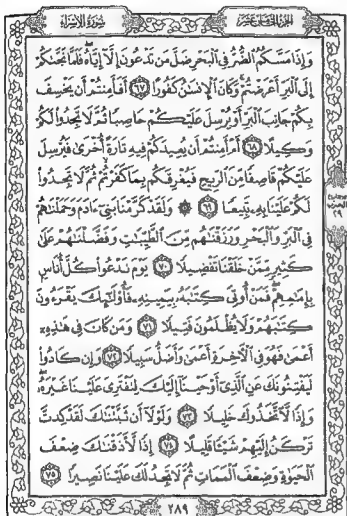 الجزء الخامس عشر
سورة الإسراء
وَإِذَا مَسَّكُمُ الضُّرُّ فِي الْبَحْرِ ضَلَّ مَن تَدْعُونَ إِلَّا إِيَّاهُ فَلَمَّا نَجَّىٰكُمْ
إِلَى الْبَرِّ أَعْرَضْتُمْ وَكَانَ الْإِنسَٰنُ كَفُورًا ٦٧ أَفَأَمِنتُمْ أَن يَخْسِفَ
بِكُمْ جَانِبَ الْبَرِّ أَوْ يُرْسِلَ عَلَيْكُمْ حَاصِبًا ثُمَّ لَا تَجِدُوا لَكُمْ
وَكِيلًا ٦٨ أَمْ أَمِنتُمْ أَن يُعِيدَكُمْ فِيهِ تَارَةً أُخْرَىٰ فَيُرْسِلَ
عَلَيْكُمْ قَاصِفًا مِّنَ الرِّيحِ فَيُغْرِقَكُم بِمَا كَفَرْتُمْ ثُمَّ لَا تَجِدُوا
لَكُمْ عَلَيْنَا بِهِ تَبِيعًا ٦٩ ۞ وَلَقَدْ كَرَّمْنَا بَنِي ءَادَمَ وَحَمَلْنَٰهُمْ
فِي الْبَرِّ وَالْبَحْرِ وَرَزَقْنَٰهُم مِّنَ الطَّيِّبَٰتِ وَفَضَّلْنَٰهُمْ عَلَىٰ
كَثِيرٍ مِّمَّنْ خَلَقْنَا تَفْضِيلًا ٧٠ يَوْمَ نَدْعُوا كُلَّ أُنَاسٍ
بِإِمَٰمِهِمْ فَمَنْ أُوتِيَ كِتَٰبَهُ بِيَمِينِهِ فَأُولَٰئِكَ يَقْرَءُونَ
كِتَٰبَهُمْ وَلَا يُظْلَمُونَ فَتِيلًا ٧١ وَمَن كَانَ فِي هَٰذِهِ
أَعْمَىٰ فَهُوَ فِي الْءَاخِرَةِ أَعْمَىٰ وَأَضَلُّ سَبِيلًا ٧٢ وَإِن كَادُوا
لَيَفْتِنُونَكَ عَنِ الَّذِي أَوْحَيْنَا إِلَيْكَ لِتَفْتَرِيَ عَلَيْنَا غَيْرَهُ
وَإِذًا لَّاتَّخَذُوكَ خَلِيلًا ٧٣ وَلَوْلَا أَن ثَبَّتْنَٰكَ لَقَدْ كِدتَّ
تَرْكَنُ إِلَيْهِمْ شَيْئًا قَلِيلًا ٧٤ إِذًا لَّأَذَقْنَٰكَ ضِعْفَ
الْحَيَوٰةِ وَضِعْفَ الْمَمَاتِ ثُمَّ لَا تَجِدُ لَكَ عَلَيْنَا نَصِيرًا ٧٥
٢٨٩